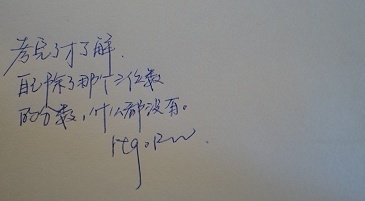 考完了才了解.
自己除了那个三位数
的分数，什么都没有。